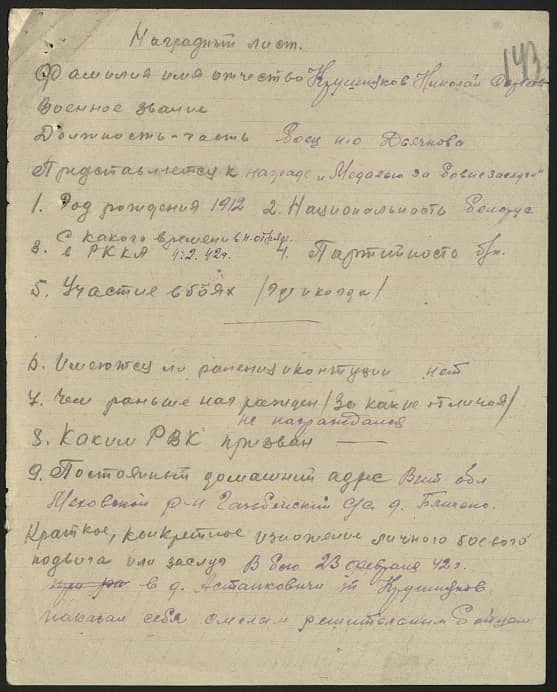 143
Наградный лист.
Фамилия имя отчество Крушняков Николай
Военное звание
Должность-часть боец п-о Дьячкова
Представляется к награде „Медалью за боевые заслуги"
1. Год рождения 1912 2. Национальность белорус
3. С какого времени в п. отряде
в РККА 1.2.42г. 4. Партийность б/п.
5. Участие в боях /где и когда/
6. Имеются ли ранения и контузии нет
7. Чем раньше награжден /За какие отличия/
не награждался
8. Каким РВК призван —
9. Постоянный домашний адрес Вит обл
Меховской р-н с/с д.
Краткое, конкретное изложение личного боевого
подвига или заслуг В бою 23 февраля 42 г.
в д. Астапковичи т Крушняков
показал себя смелым решительным бойцом